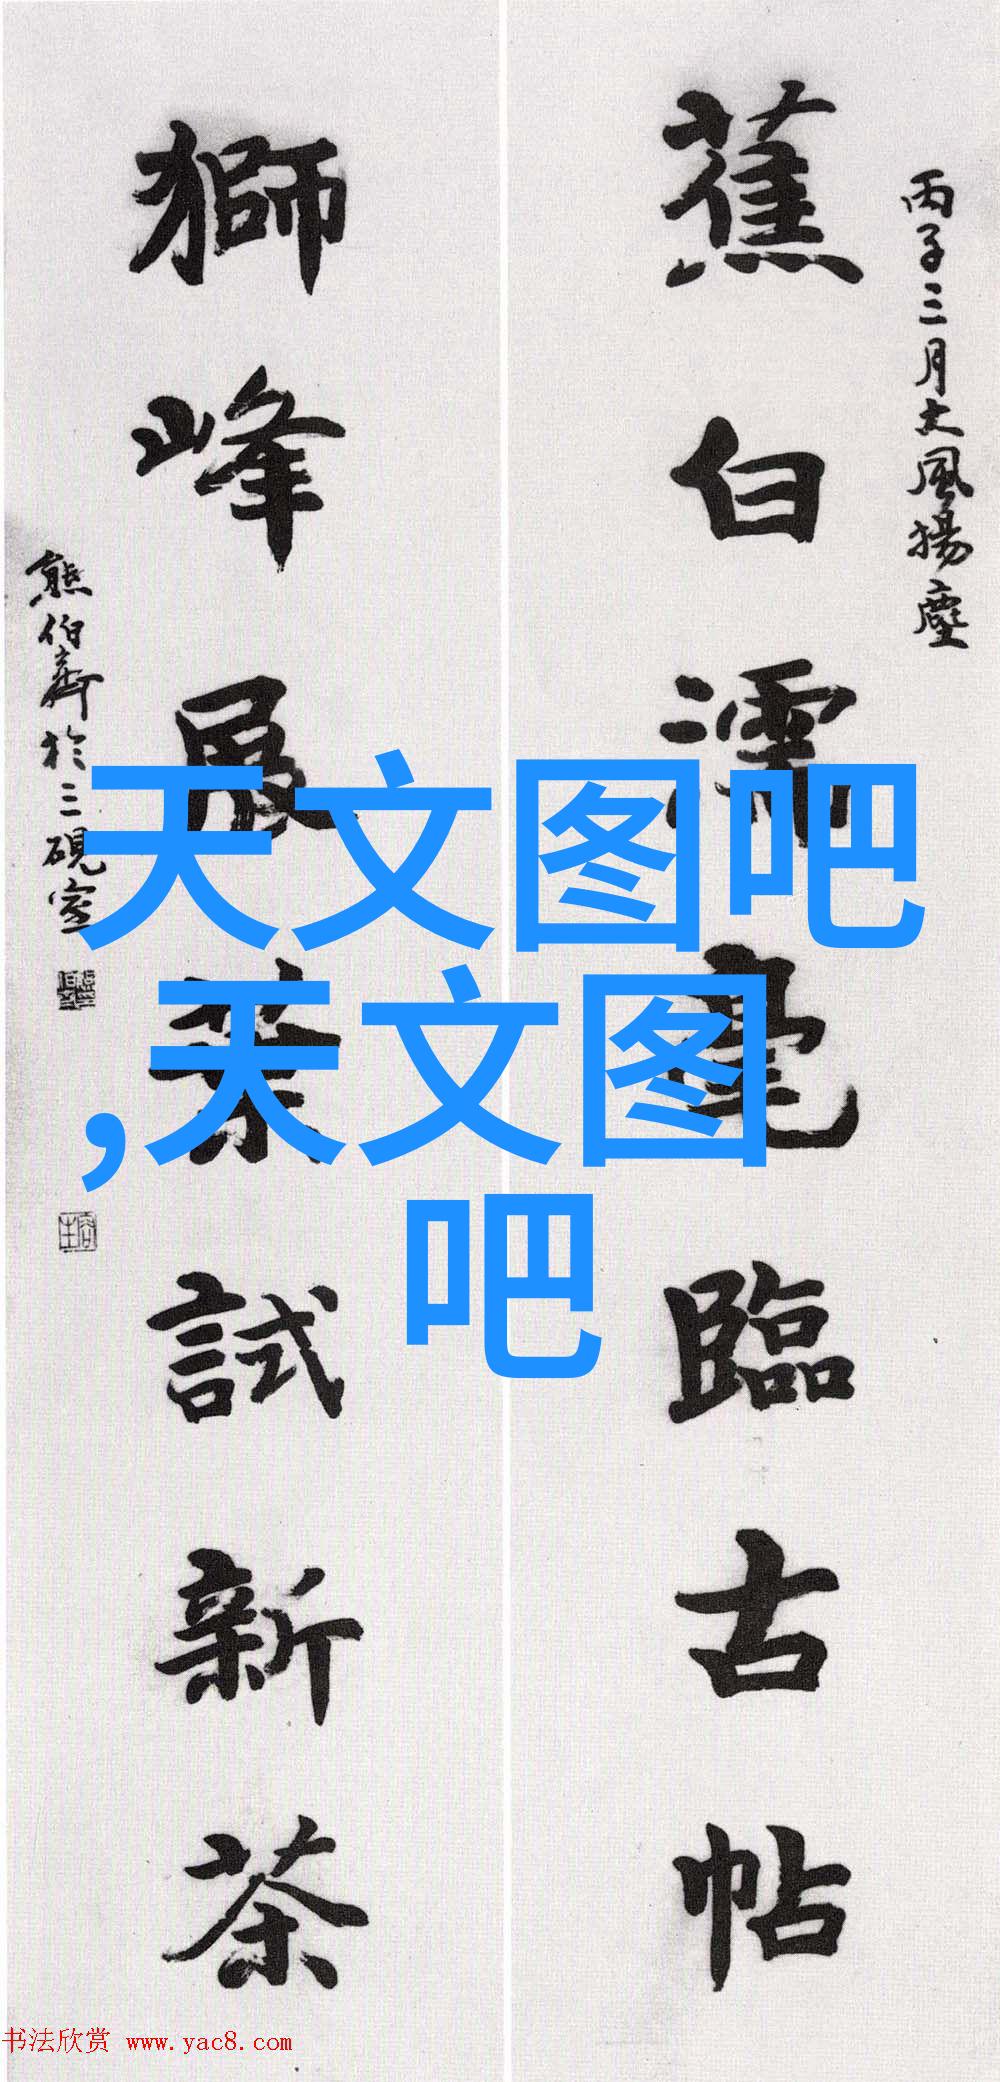 丙子三月大風揚塵
蕉白濡毫臨古帖
獅峰展葉試新茶
熊伯齊於三硯室
天文图吧
,天文图
吧
书法欣赏 www.yac8.com